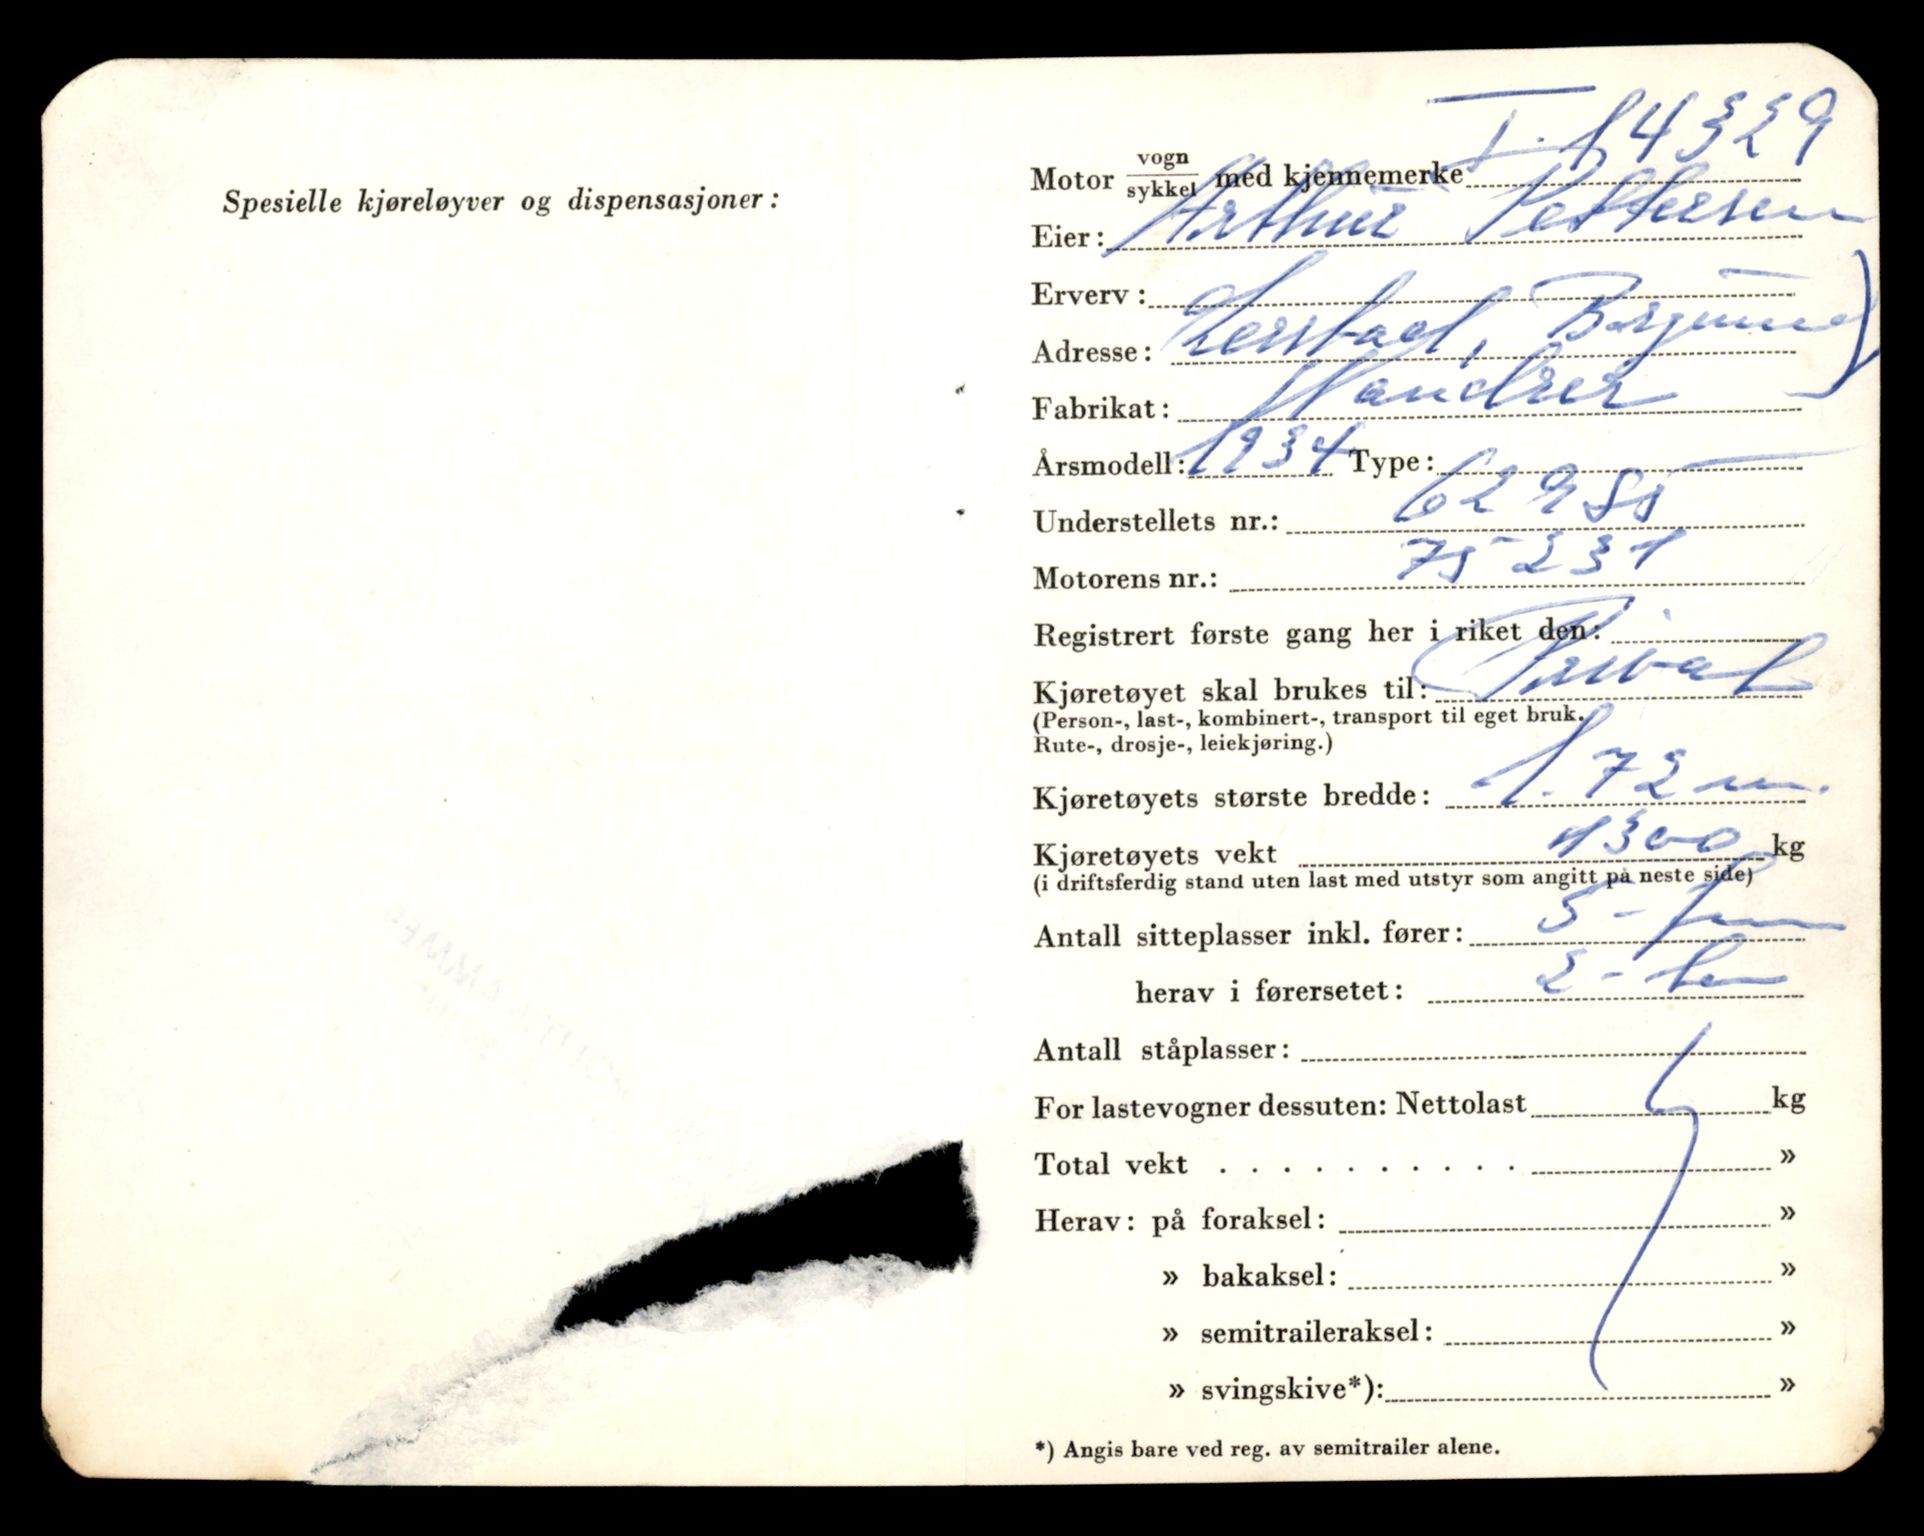 Spesielle kjøreløyver og dispensasjoner:
Motor vogn/sykkel med kjennemerke T. 14329
Eier: Arthur Pettersen
Erverv:
Adresse: Borgund
Fabrikat: Wandrer
Årsmodell: 1934 Type:
Understellets nr.: 62985
Motorens nr.: 75231
Registrert første gang her i riket den:
Kjøretøyet skal brukes til: Privat
(Person-, last-, kombinert-, transport til eget bruk.
Rute-, drosje-, leiekjøring.)
Kjøretøyets største bredde: 1.72 m.
Kjøretøyets vekt 1300 kg
(i driftsferdig stand uten last med utstyr som angitt på neste side)
Antall sitteplasser inkl. fører: 5 - fem
herav i førersetet: 2 - to
Antall ståplasser:
For lastevogner dessuten: Nettolast kg
Total vekt . . . . . . . . . . »
Herav: på foraksel: »
» bakaksel: »
» semitraileraksel: »
» svingskive*): »
*) Angis bare ved reg. av semitrailer alene.